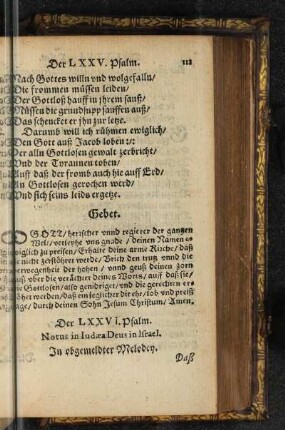 Der LXXV. Psalm. 112
Nach Gottes willn vnd wolgefalln/
Die frommen müssen leiden/
Der Gottloß hauff in jhrem sauß/
Müssen die grundsupp sauffen auß/
Das schencket er jhn zur letze.
Darumb will ich rühmen ewiglich/
Den Gott auß Jacob loben:/:
Der alln Gottlosen gewalt zerbricht/
Vnd der Tyrannen toben/
Auff daß der fromb auch hie auff Erd/
An Gottlosen gerochen werd/
Vnd sich seins leids ergetze.
Gebet.
O GOTT/ herischer vnnd regierer der gantzen
Welt/ verleyhe vns gnade/ deinen Namen
ewiglich zu preisen/ Erhalte deine arme Kirche/ daß
nicht zerstöhret werde/ Brich den trutz vnnd die
verwegenheit der hohen/ vnnd geuß deinen zorn
auß über die verächter deines Worts/ auff daß sie/
Gottlosen/ also genidriget/ vnd die gerechten
erhöhet werden/ daß ein jeglicher dir ehr/ lob vnd preiß
sage/ durch deinen Sohn Jesum Christum/ Amen.
Der LXXVI. Psalm.
Notus in Iudæa Deus in Israel.
In obgemeldter Melodey.
Daß